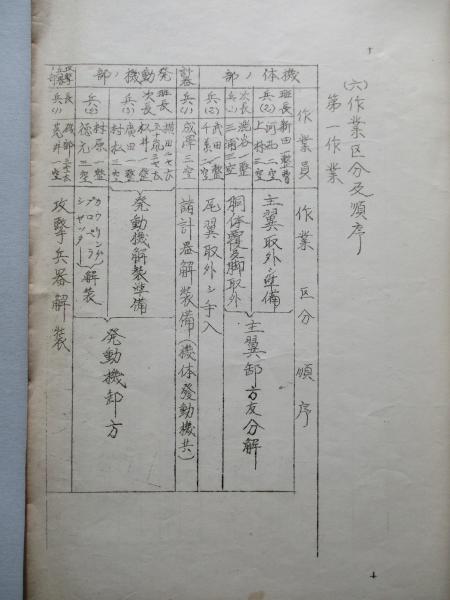 (六)作業区分及順序
第一作業
作業員　作業区分　順序
機体ノ部
班長 新田一整曹
兵(2) 河西二空
上林三空
主翼取外シ準備
次長 瀧谷一整
兵(1) 三浦三空
胴体覆及脚取外
主翼卸方及分解
兵(2) 武田一整
千葉二空
尾翼取外シ手入
計器
兵(1) 成澤三空
諸計器解装備(機体発動機共)
発動機ノ部
班長 横田
次長
兵(3) 松井二空
廣田一整
村松三空
発動機解装準備
兵(2) 村原一整
徳元三空
カウリング
プロペラ
シャッター
解装
発動機卸方
攻撃兵器部
長 磯部
兵(1) 荒井一空
攻撃兵器解装